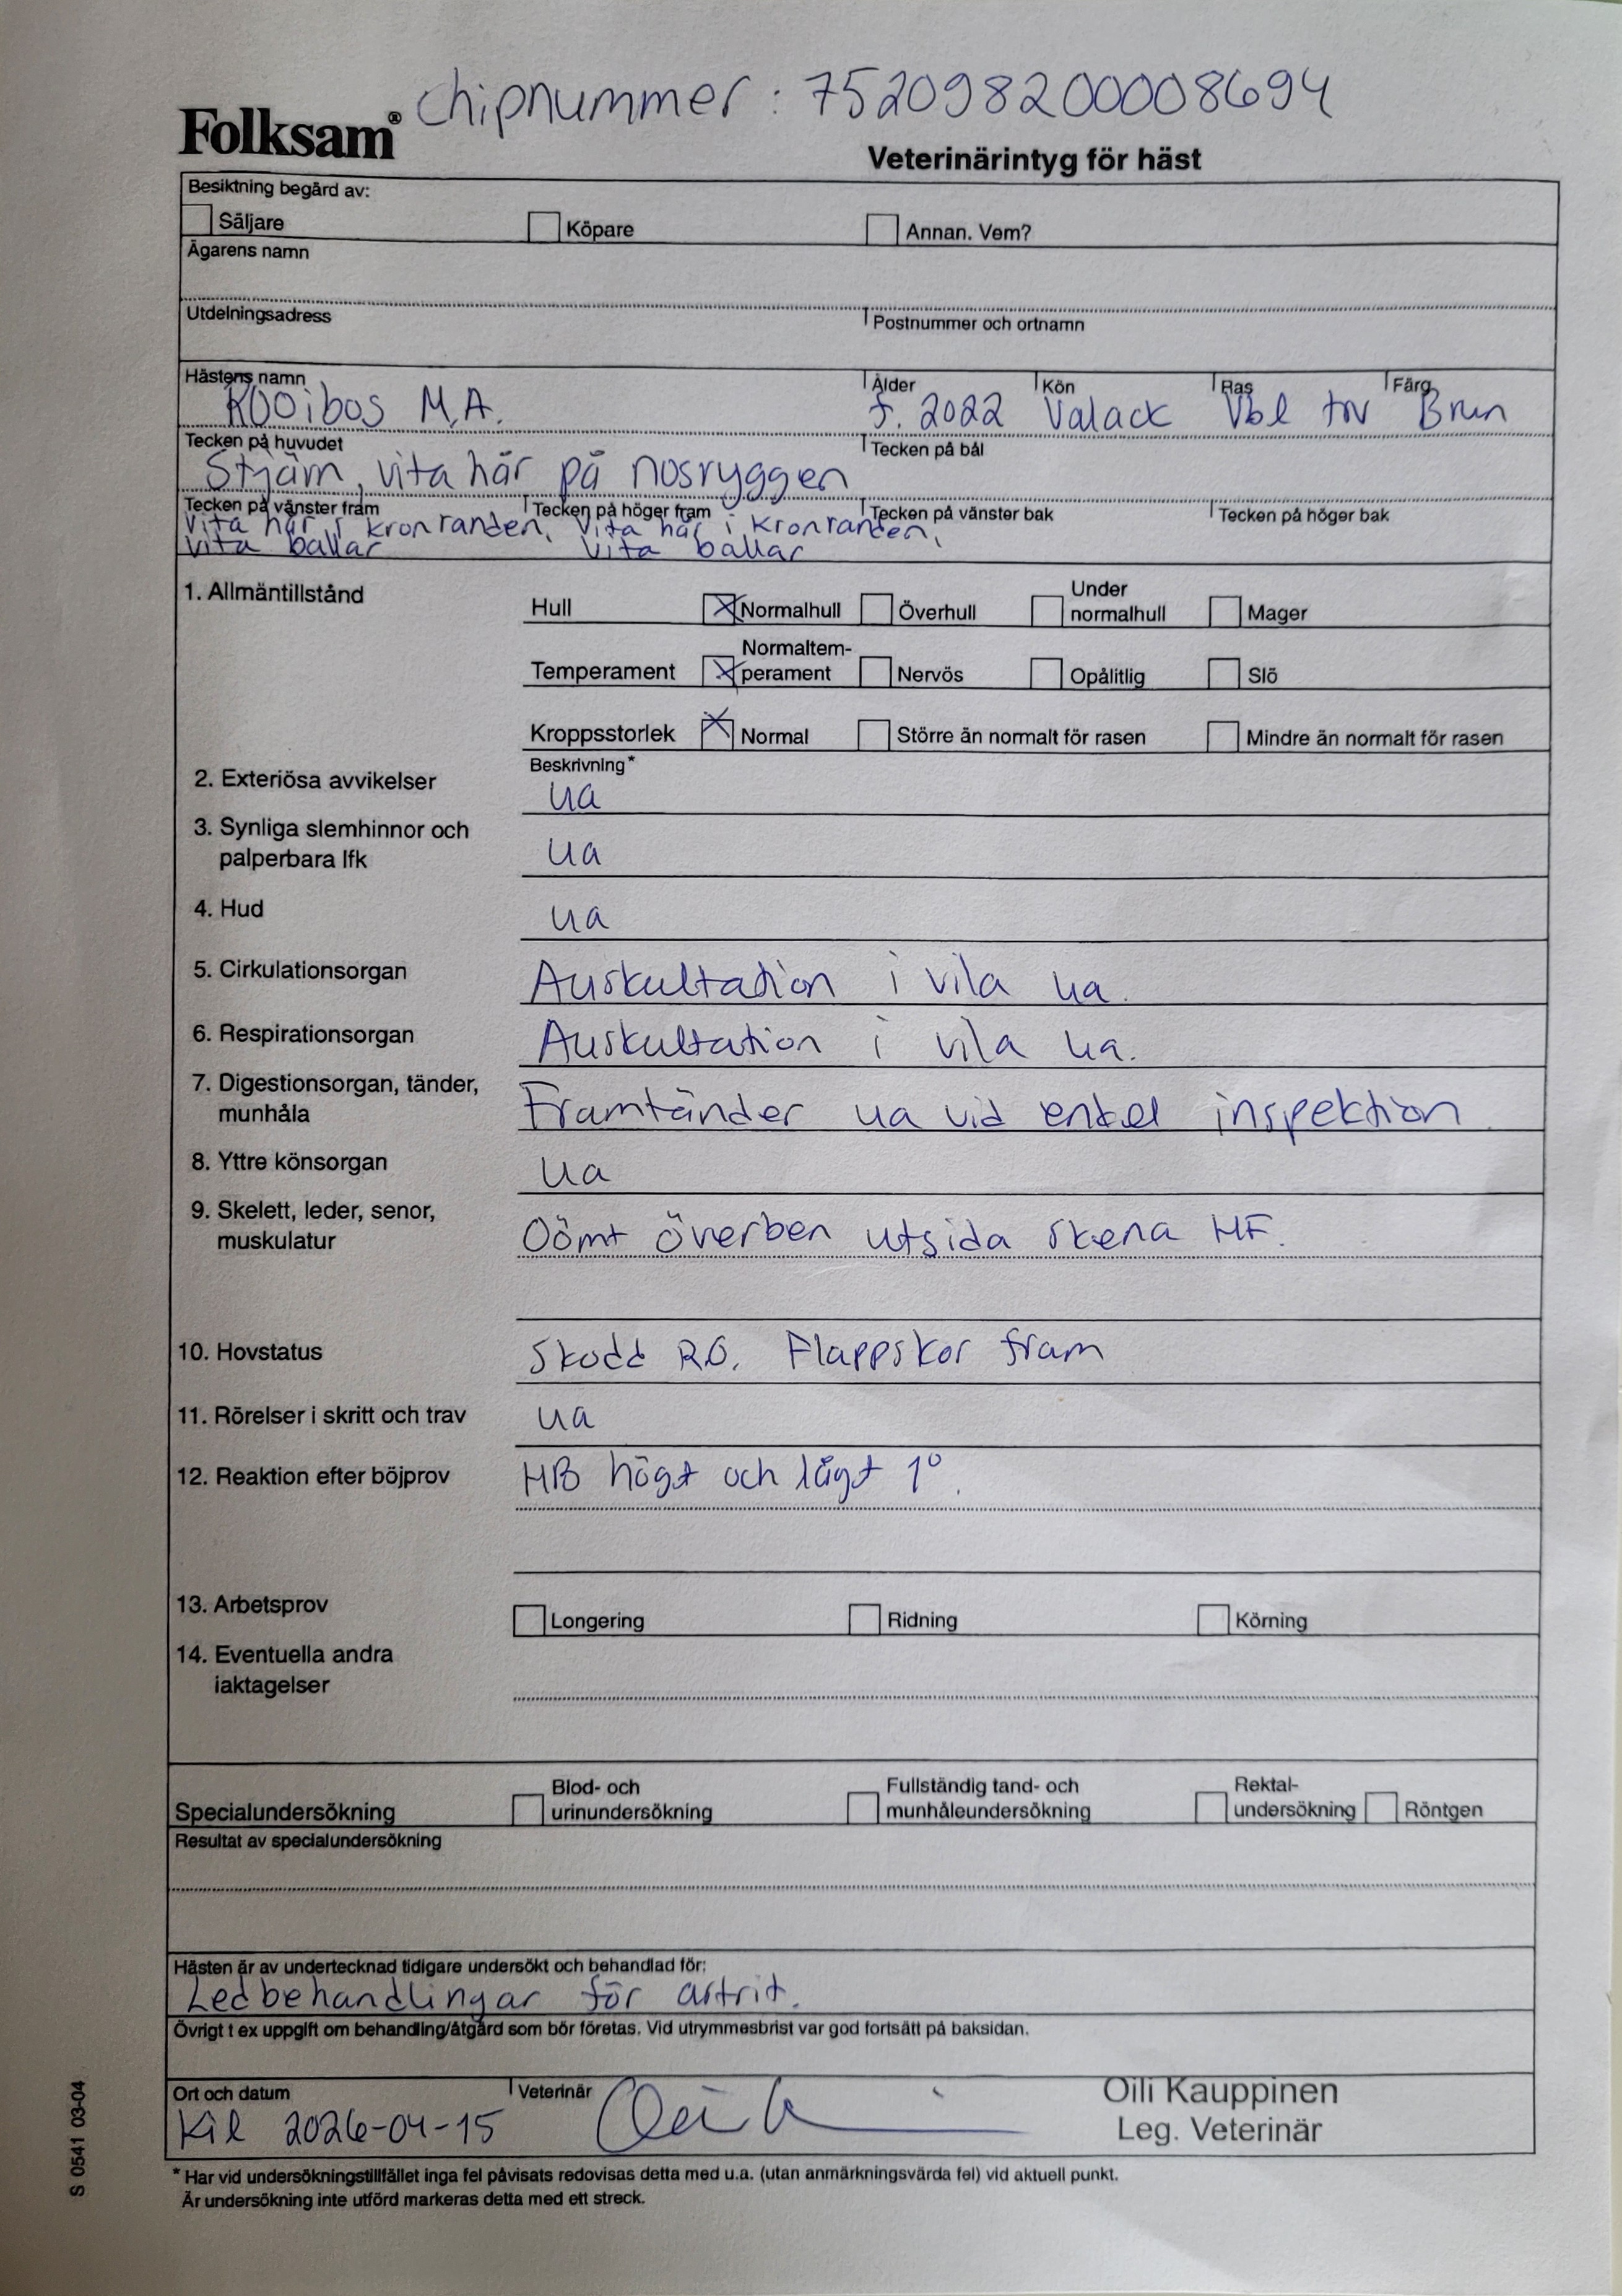 chipnummer: 752098200008694
Folksam®
Veterinärintyg för häst
Besiktning begärd av:
Säljare Köpare Annan. Vem?
Ägarens namn
Utdelningsadress Postnummer och ortnamn
Hästens namn Ålder Kön Ras Färg
Rooibos M.A. f. 2022 Valack Vbl trv Brun
Tecken på huvudet Tecken på bål
Stjärn, vita hår på nosryggen
Tecken på vänster fram Tecken på höger fram Tecken på vänster bak Tecken på höger bak
Vita hår i kronranden, Vita hår i kronranden,
vita ballar vita ballar
1. Allmäntillstånd Hull Normalhull Överhull Under normalhull Mager
Temperament Normaltem-perament Nervös Opålitlig Slö
Kroppsstorlek Normal Större än normalt för rasen Mindre än normalt för rasen
Beskrivning*
2. Exteriösa avvikelser ua
3. Synliga slemhinnor och
palperbara lfk ua
4. Hud ua
5. Cirkulationsorgan Auskultation i vila ua.
6. Respirationsorgan Auskultation i vila ua.
7. Digestionsorgan, tänder,
munhåla Framtänder ua vid enkel inspektion
8. Yttre könsorgan ua
9. Skelett, leder, senor,
muskulatur Oömt överben utsida skena HF.
10. Hovstatus Skodd R.O. Flappskor fram
11. Rörelser i skritt och trav ua
12. Reaktion efter böjprov HB högt och lågt 1°.
13. Arbetsprov Longering Ridning Körning
14. Eventuella andra
iaktagelser
Specialundersökning Blod- och urinundersökning Fullständig tand- och munhåleundersökning Rektal-undersökning Röntgen
Resultat av specialundersökning
Hästen är av undertecknad tidigare undersökt och behandlad för:
Ledbehandlingar för artrit.
Övrigt t ex uppgift om behandling/åtgärd som bör företas. Vid utrymmesbrist var god fortsätt på baksidan.
Ort och datum Veterinär
Kil 2026-04-15
Oili Kauppinen
Leg. Veterinär
* Har vid undersökningstillfället inga fel påvisats redovisas detta med u.a. (utan anmärkningsvärda fel) vid aktuell punkt.
Är undersökning inte utförd markeras detta med ett streck.
S 0541 03-04